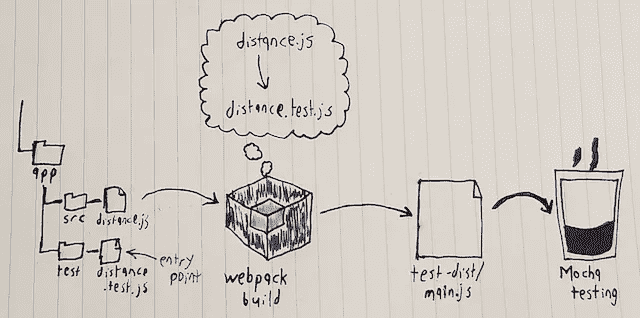 distance.js
distance.test.js
app
src
distance.js
test
distance
.test.js
entry
point
webpack
build
test-dist/
main.js
Mocha
testing